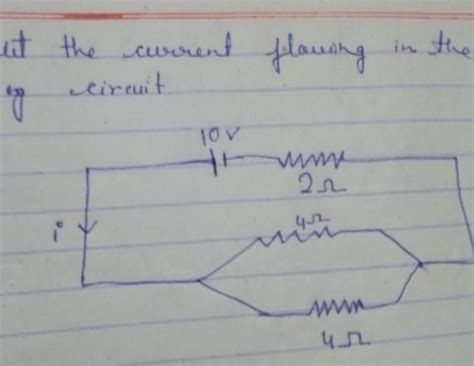 ut the current flowing in the
eg circuit
10V
2Ω
4Ω
i
4Ω